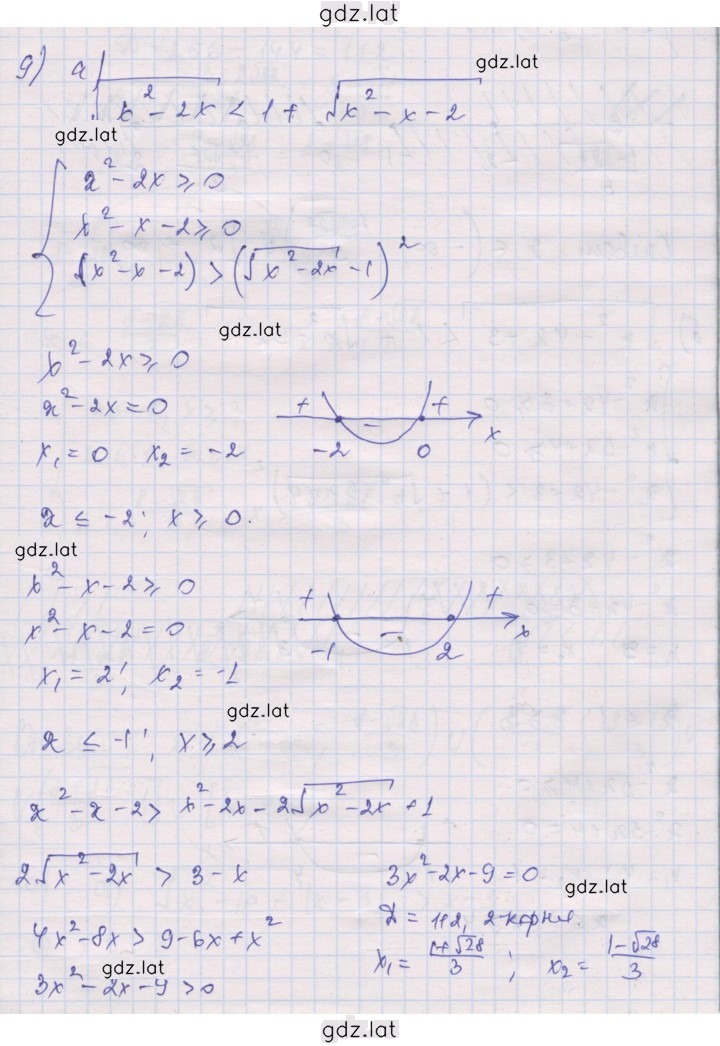 gdz.lat
g) a√x² - 2x < 1 + √x² - x - 2
gdz.lat
gdz.lat
x² - 2x ⩾ 0
x² - x - 2 ⩾ 0
(x² - x - 2) > (√x² - 2x - 1)²
gdz.lat
x² - 2x ⩾ 0
x² - 2x = 0
x₁ = 0 x₂ = -2
+ - + x
-2 0
x ≤ -2; x ⩾ 0.
gdz.lat
x² - x - 2 ⩾ 0
x² - x - 2 = 0
x₁ = 2; x₂ = -1
+ - + x
-1 2
gdz.lat
x ≤ -1; x ⩾ 2
x² - x - 2 > x² - 2x - 2√x² - 2x + 1
2√x² - 2x > 3 - x
4x² - 8x > 9 - 6x + x²
gdz.lat
3x² - 2x - 9 > 0
3x² - 2x - 9 = 0
gdz.lat
D = 112, 2 корня.
x₁ = 1+√28/3; x₂ = 1-√28/3
gdz.lat